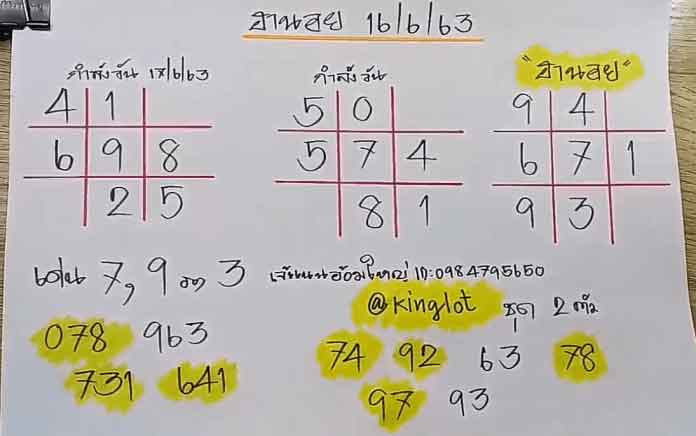 ฮานอย 16/6/63
กำลังวัน 17/6/63
4 1
6 9 8
2 5
กำลังวัน
5 0
5 7 4
8 1
"ฮานอย"
9 4
6 7 1
9 3
เด่น 7, 9 รอง 3
078 963
731 641
ID:0984795650
@Kinglot ชุด 2 ตัว
74 92 63 78
97 93